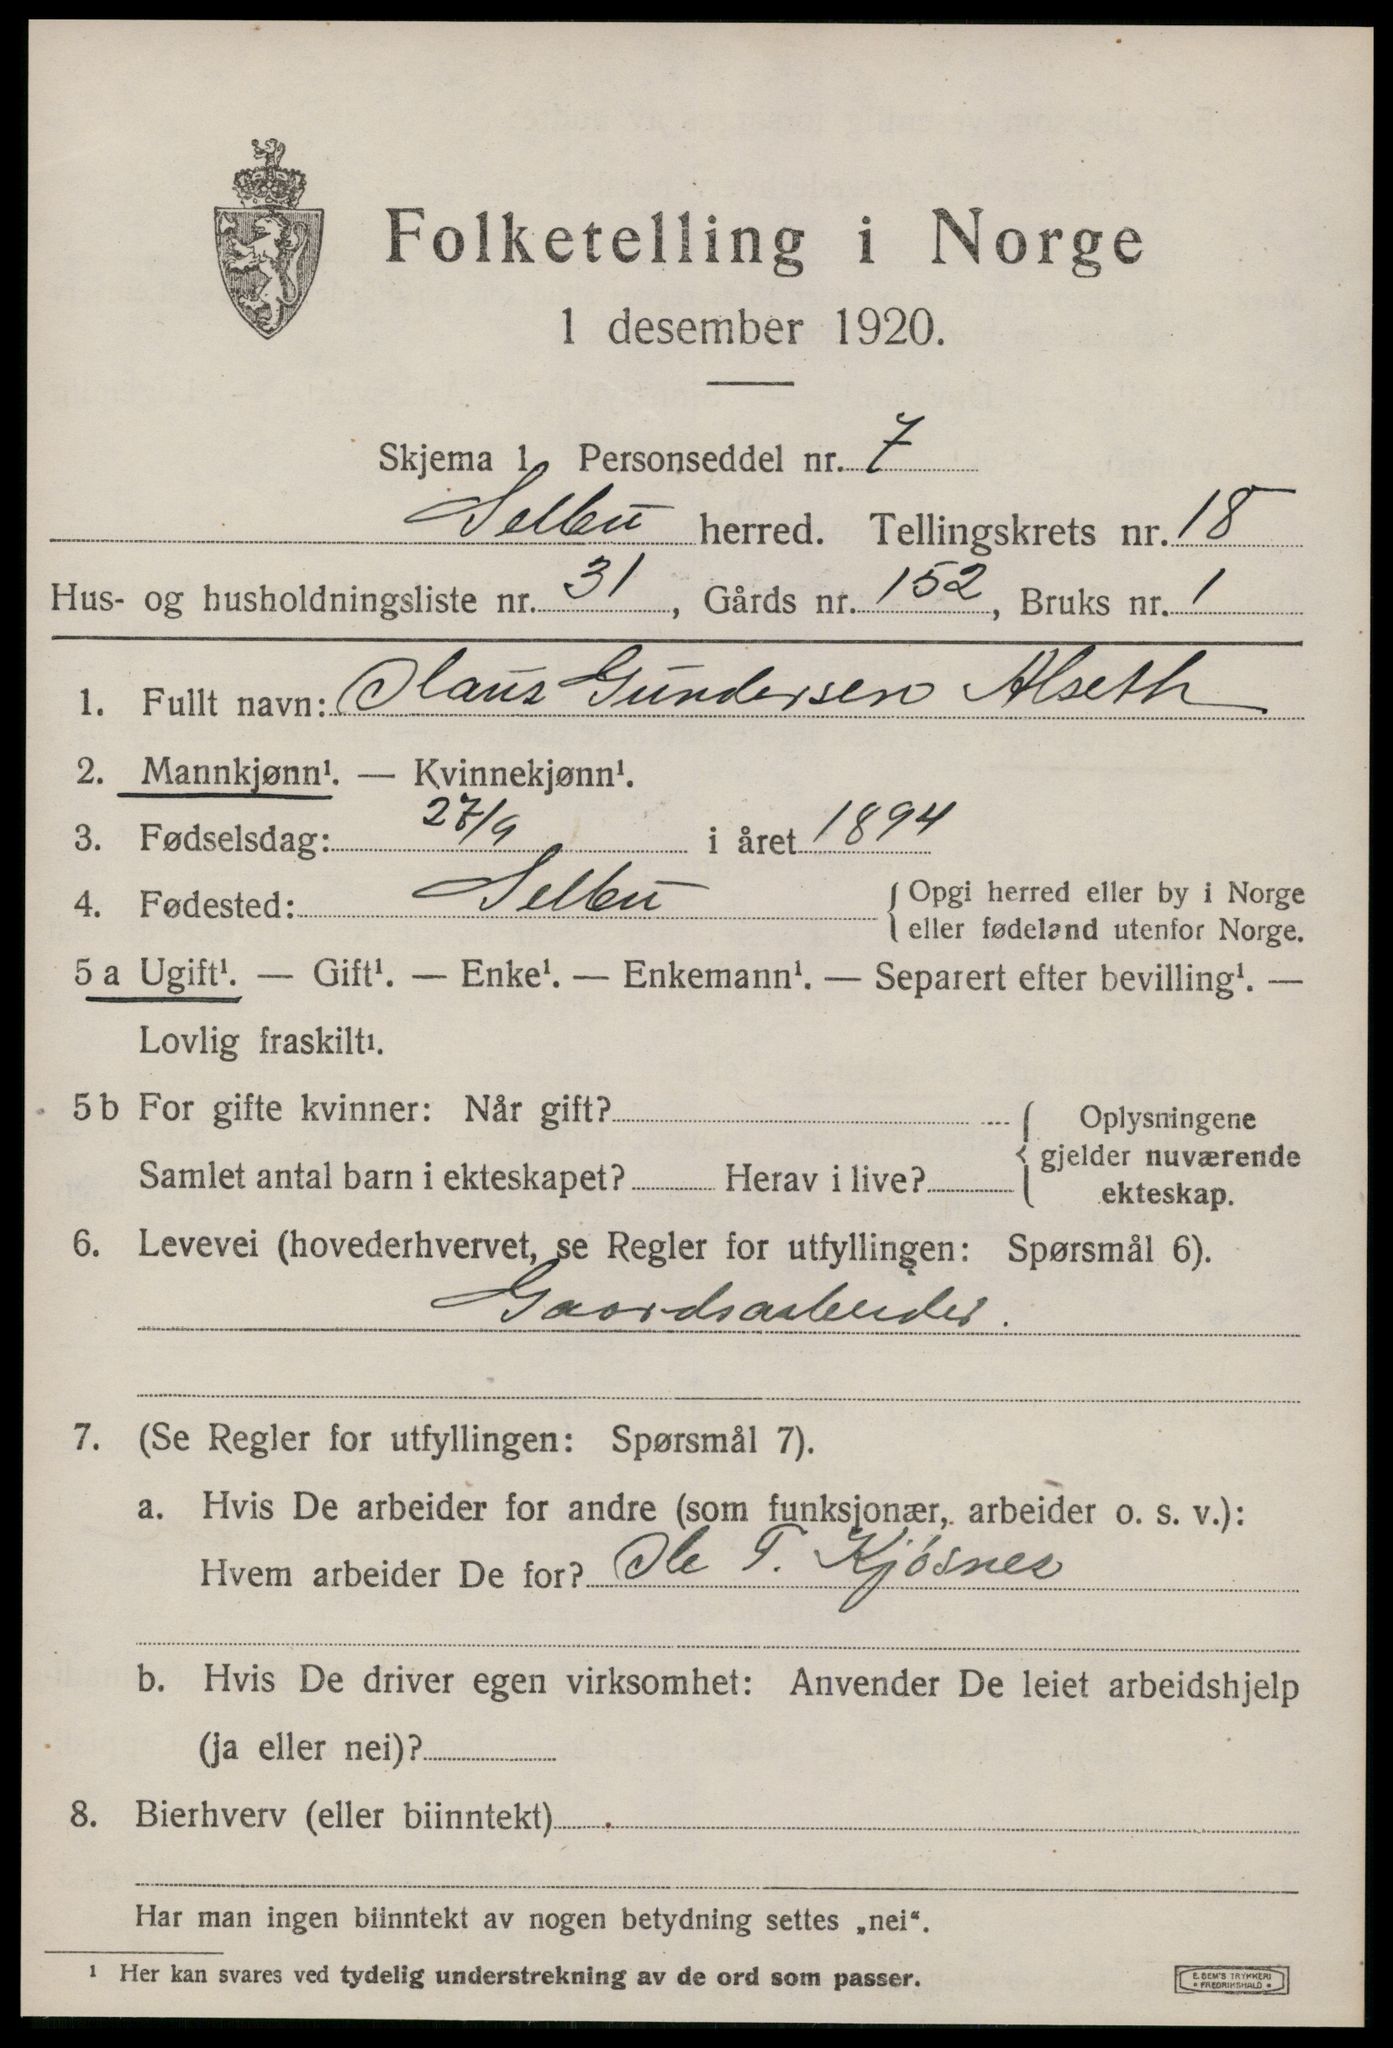 Folketelling i Norge
1 desember 1920.
Skjema 1 Personseddel nr. 7
Selbu herred. Tellingskrets nr. 18
Hus- og husholdningsliste nr. 31, Gårds nr. 152, Bruks nr. 1
1. Fullt navn: Olaus Gundersen Alseth
2. Mannkjønn¹. — Kvinnekjønn¹.
3. Fødselsdag: 27/9 i året 1894
4. Fødested: Selbu { Opgi herred eller by i Norge
eller fødeland utenfor Norge.
5 a Ugift¹. — Gift¹. — Enke¹. — Enkemann¹. — Separert efter bevilling¹. —
Lovlig fraskilt¹.
5 b For gifte kvinner: Når gift? { Oplysningene
gjelder nuværende
Samlet antal barn i ekteskapet? Herav i live?
ekteskap.
6. Levevei (hovederhvervet, se Regler for utfyllingen: Spørsmål 6).
Gaardsarbeider.
7. (Se Regler for utfyllingen: Spørsmål 7).
a. Hvis De arbeider for andre (som funksjonær, arbeider o. s. v.):
Hvem arbeider De for? Ole T. Kjösnes
b. Hvis De driver egen virksomhet: Anvender De leiet arbeidshjelp
(ja eller nei)?
8. Bierhverv (eller biinntekt)
Har man ingen biinntekt av nogen betydning settes „nei“.
¹ Her kan svares ved tydelig understrekning av de ord som passer.
E. SEM'S TRYKKERI
• FREDRIKSHALD •